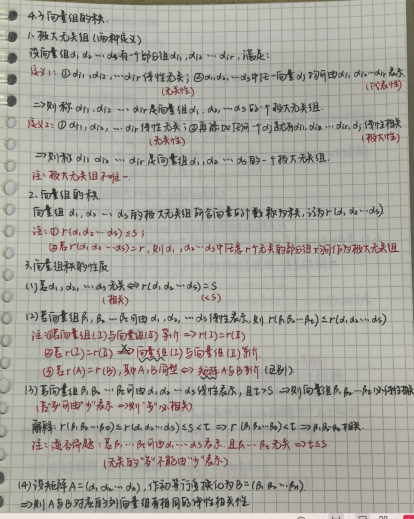 4.3 向量组的秩
1. 极大无关组 (两种定义)
设向量组α₁,α₂…αs有一个部分组αi₁,αi₂…αir, 满足:
定义1: ①αi₁,αi₂,…αir线性无关; ②α₁,α₂,…αs中任一向量αj均可由αi₁,αi₂…αir表示
(无关性) (代表性)
⇒则称αi₁,αi₂…αir是向量组α₁,α₂,…αs的一个极大无关组.
定义2: ①αi₁,αi₂,…αir线性无关; ②再添加任何一个αj就有αi₁,αi₂…αir,αj线性相关
(无关性) (极大性)
⇒则称αi₁,αi₂…αir是向量组α₁,α₂…αs的一个极大无关组.
注: 极大无关组不唯一.
2. 向量组的秩
向量组α₁,α₂…αs的极大无关组所含向量的个数称为秩, 记为r(α₁,α₂…αs)
注: ①r(α₁,α₂…αs)≤s;
②若r(α₁,α₂…αs)=r, 则α₁,α₂…αs中任意r个无关的部分组均可作为极大无关组
3. 向量组秩的性质
(1)若α₁,α₂,…αs无关⇔r(α₁,α₂…αs)=s
(相关) (<s)
(2)若向量组β₁,β₂…βt可由α₁,α₂,…αs线性表示, 则r(β₁,β₂…βt)≤r(α₁,α₂…αs)
注: ①若向量组(I)与向量组(II)等价⇒r(I)=r(II)
②若r(I)=r(II) 向量组(I)与向量组(II)等价
③若r(A)=r(B), 且A,B同型⇔矩阵A与B等价. (区别)
(3)若向量组β₁,β₂…βt可由α₁,α₂…αs线性表示, 且t>s ⇒则向量组β₁,β₂…βt必线性相关
(若“多”可由“少”表示⇒则“多”必相关)
解释: r(β₁,β₂…βt)≤r(α₁,α₂…αs)≤s<t⇒r(β₁,β₂…βt)<t⇒β₁,β₂…βt相关.
注: 逆否命题: 若β₁…βt可由α₁…αs表示, 且β₁…βt无关⇒t≤s
(无关的“多”不能由“少”表示)
(4)设矩阵A=(α₁,α₂…αn), 作初等行变换化为B=(β₁,β₂…βn)
⇒则A与B对应的列向量组有相同的线性相关性